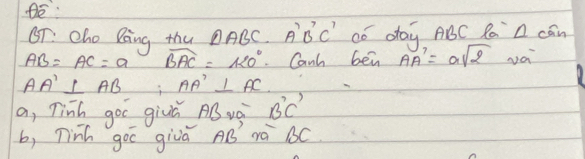 Đề:
BT: Cho lăng trụ ΔABC. A'B'C' có đáy ABC là Δ cân
AB = AC = a  BAC = 120°. Cạnh bên AA' = a√2 và
AA' ⊥ AB ; AA' ⊥ AC.
a, Tính góc giữa AB và B'C'
b, Tính góc giữa AB' và BC.